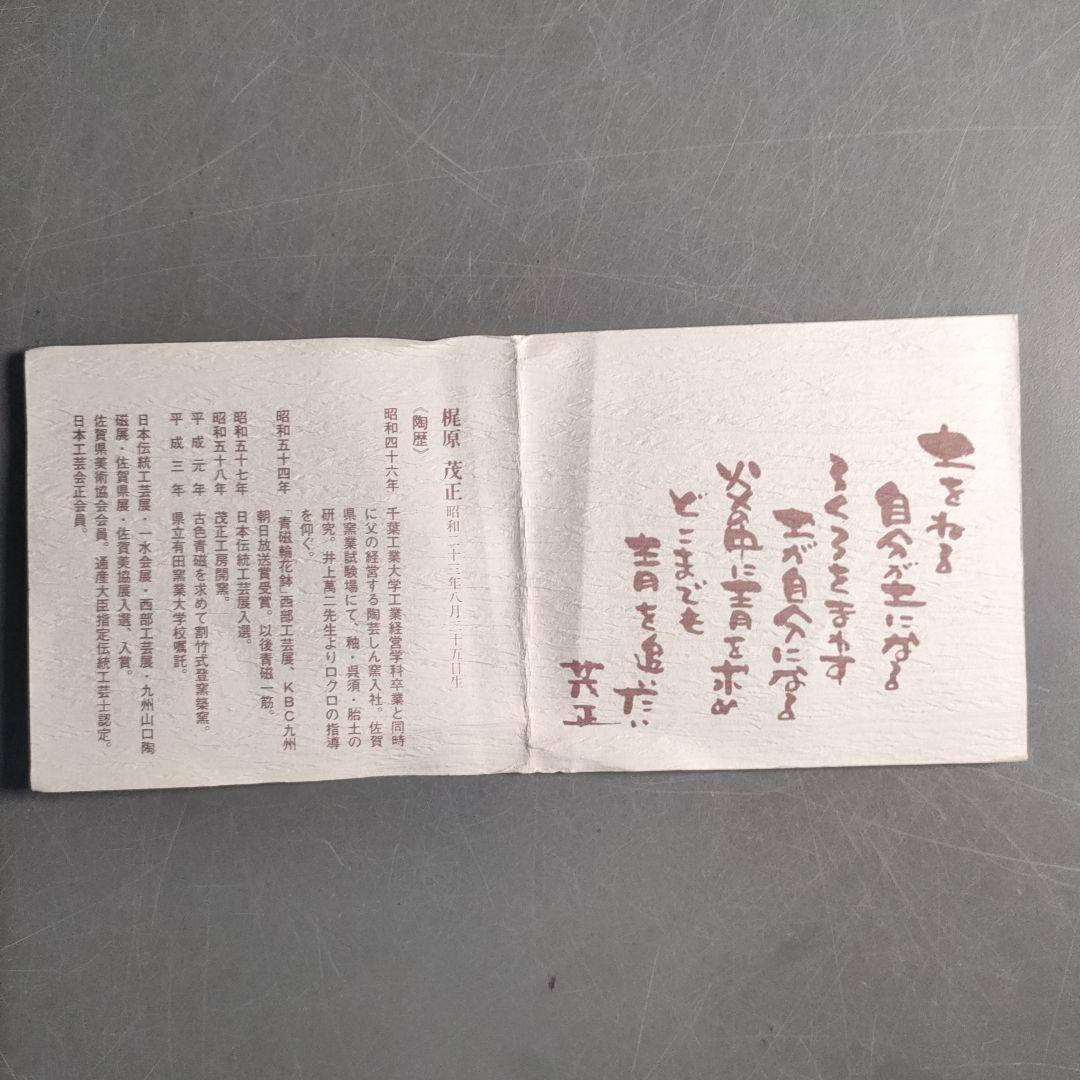 土をねる
自分が土になる
ろくろをまわす
土が自分になる
炎の中に青を求め
どこまでも
青を追いたい
茂正
梶原 茂正 昭和二十三年八月二十五日生
《陶歴》
昭和四十六年 千葉工業大学工業経営学科卒業と同時
に父の経営する陶芸しん窯入社。佐賀
県窯業試験場にて、釉・呉須・胎土の
研究。井上萬二先生よりロクロの指導
を仰ぐ。
昭和五十四年 「青磁輪花鉢」西部工芸展、KBC九州
朝日放送賞受賞。以後青磁一筋。
昭和五十七年 日本伝統工芸展入選。
昭和五十八年 茂正工房開窯。
平成元年 古色青磁を求めて割竹式登窯築窯。
平成三年 県立有田窯業大学校嘱託。
日本伝統工芸展・一水会展・西部工芸展・九州山口陶
磁展・佐賀県展・佐賀美協展入選、入賞。
佐賀県美術協会会員。通産大臣指定伝統工芸士認定。
日本工芸会正会員。